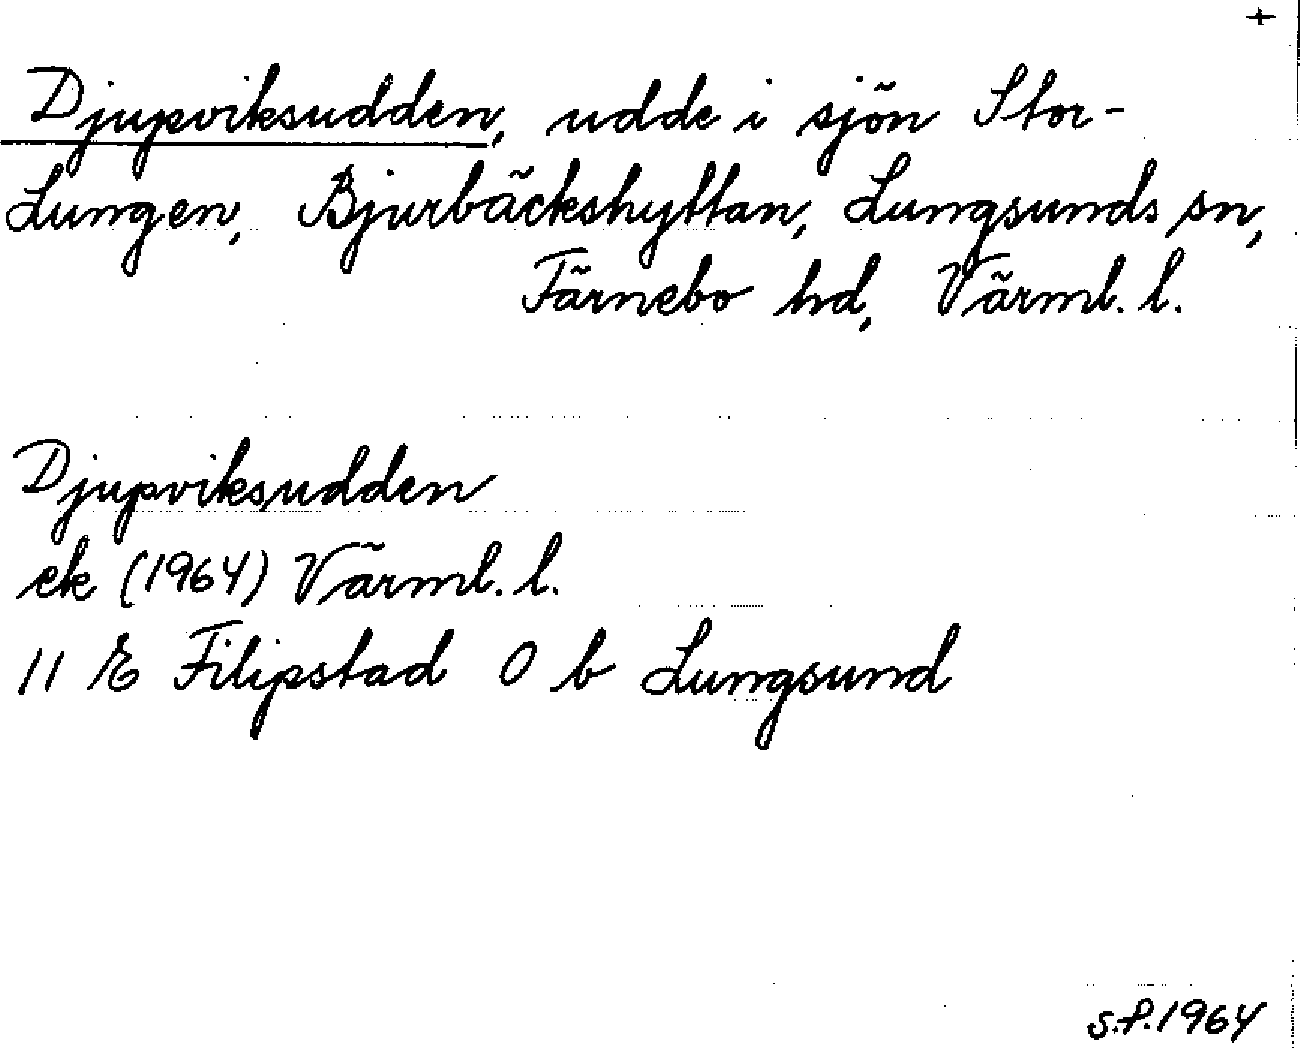 +
Djupviksudden, udde i sjön Stor-
Lungen, Bjurbäckshyttan, Lungsunds sn,
Färnebo hd, Värml. l.
Djupviksudden
ek (1964) Värml. l.
11 E Filipstad 0 b Lungsund
s.f. 1964